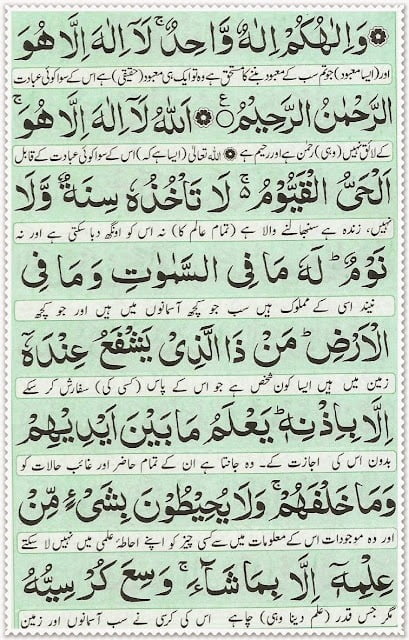 وَاِلٰهُكُمْ اِلٰهٌ وَّاحِدٌ ۚ لَآ اِلٰهَ اِلَّا هُوَ
اور (ایسا معبود) جو تم سب کے معبود بننے کا مستحق ہے وہ تو ایک ہی معبود (حقیقی) ہے اس کے سوا کوئی عبادت
الرَّحْمٰنُ الرَّحِيْمُ ۝ اَللّٰهُ لَآ اِلٰهَ اِلَّا هُوَ ۚ
کے لائق نہیں (وہی) رحمٰن ہے اور رحیم ہے اللہ تعالیٰ (ایسا ہے کہ) اس کے سوا کوئی عبادت کے قابل
اَلْحَىُّ الْقَيُّوْمُ ۚ لَا تَاْخُذُهٗ سِنَةٌ وَّلَا
نہیں، زندہ ہے سنبھالنے والا ہے (تمام عالم کا) نہ اس کو اونگھ دبا سکتی ہے اور نہ
نَوْمٌ ؕ لَهٗ مَا فِى السَّمٰوٰتِ وَمَا فِى
نیند اسی کے مملوک ہیں سب جو کچھ آسمانوں میں ہیں اور جو کچھ
الْاَرْضِ ؕ مَنْ ذَا الَّذِىْ يَشْفَعُ عِنْدَهٗۤ
زمین میں ہیں ایسا کون شخص ہے جو اس کے پاس (کسی کی) سفارش کر سکے
اِلَّا بِاِذْنِهٖ ؕ يَعْلَمُ مَا بَيْنَ اَيْدِيْهِمْ
بدون اس کی اجازت کے۔ وہ جانتا ہے ان کے تمام حاضر اور غائب حالات کو
وَمَا خَلْفَهُمْ ۚ وَلَا يُحِيْطُوْنَ بِشَىْءٍ مِّنْ
اور وہ موجودات اس کے معلومات میں سے کسی چیز کو اپنے احاطۂ علمی میں نہیں لا سکتے
عِلْمِهٖۤ اِلَّا بِمَا شَآءَ ۚ وَسِعَ كُرْسِيُّهُ
مگر جس قدر (علم دینا وہی) چاہے اس کی کرسی نے سب آسمانوں اور زمین